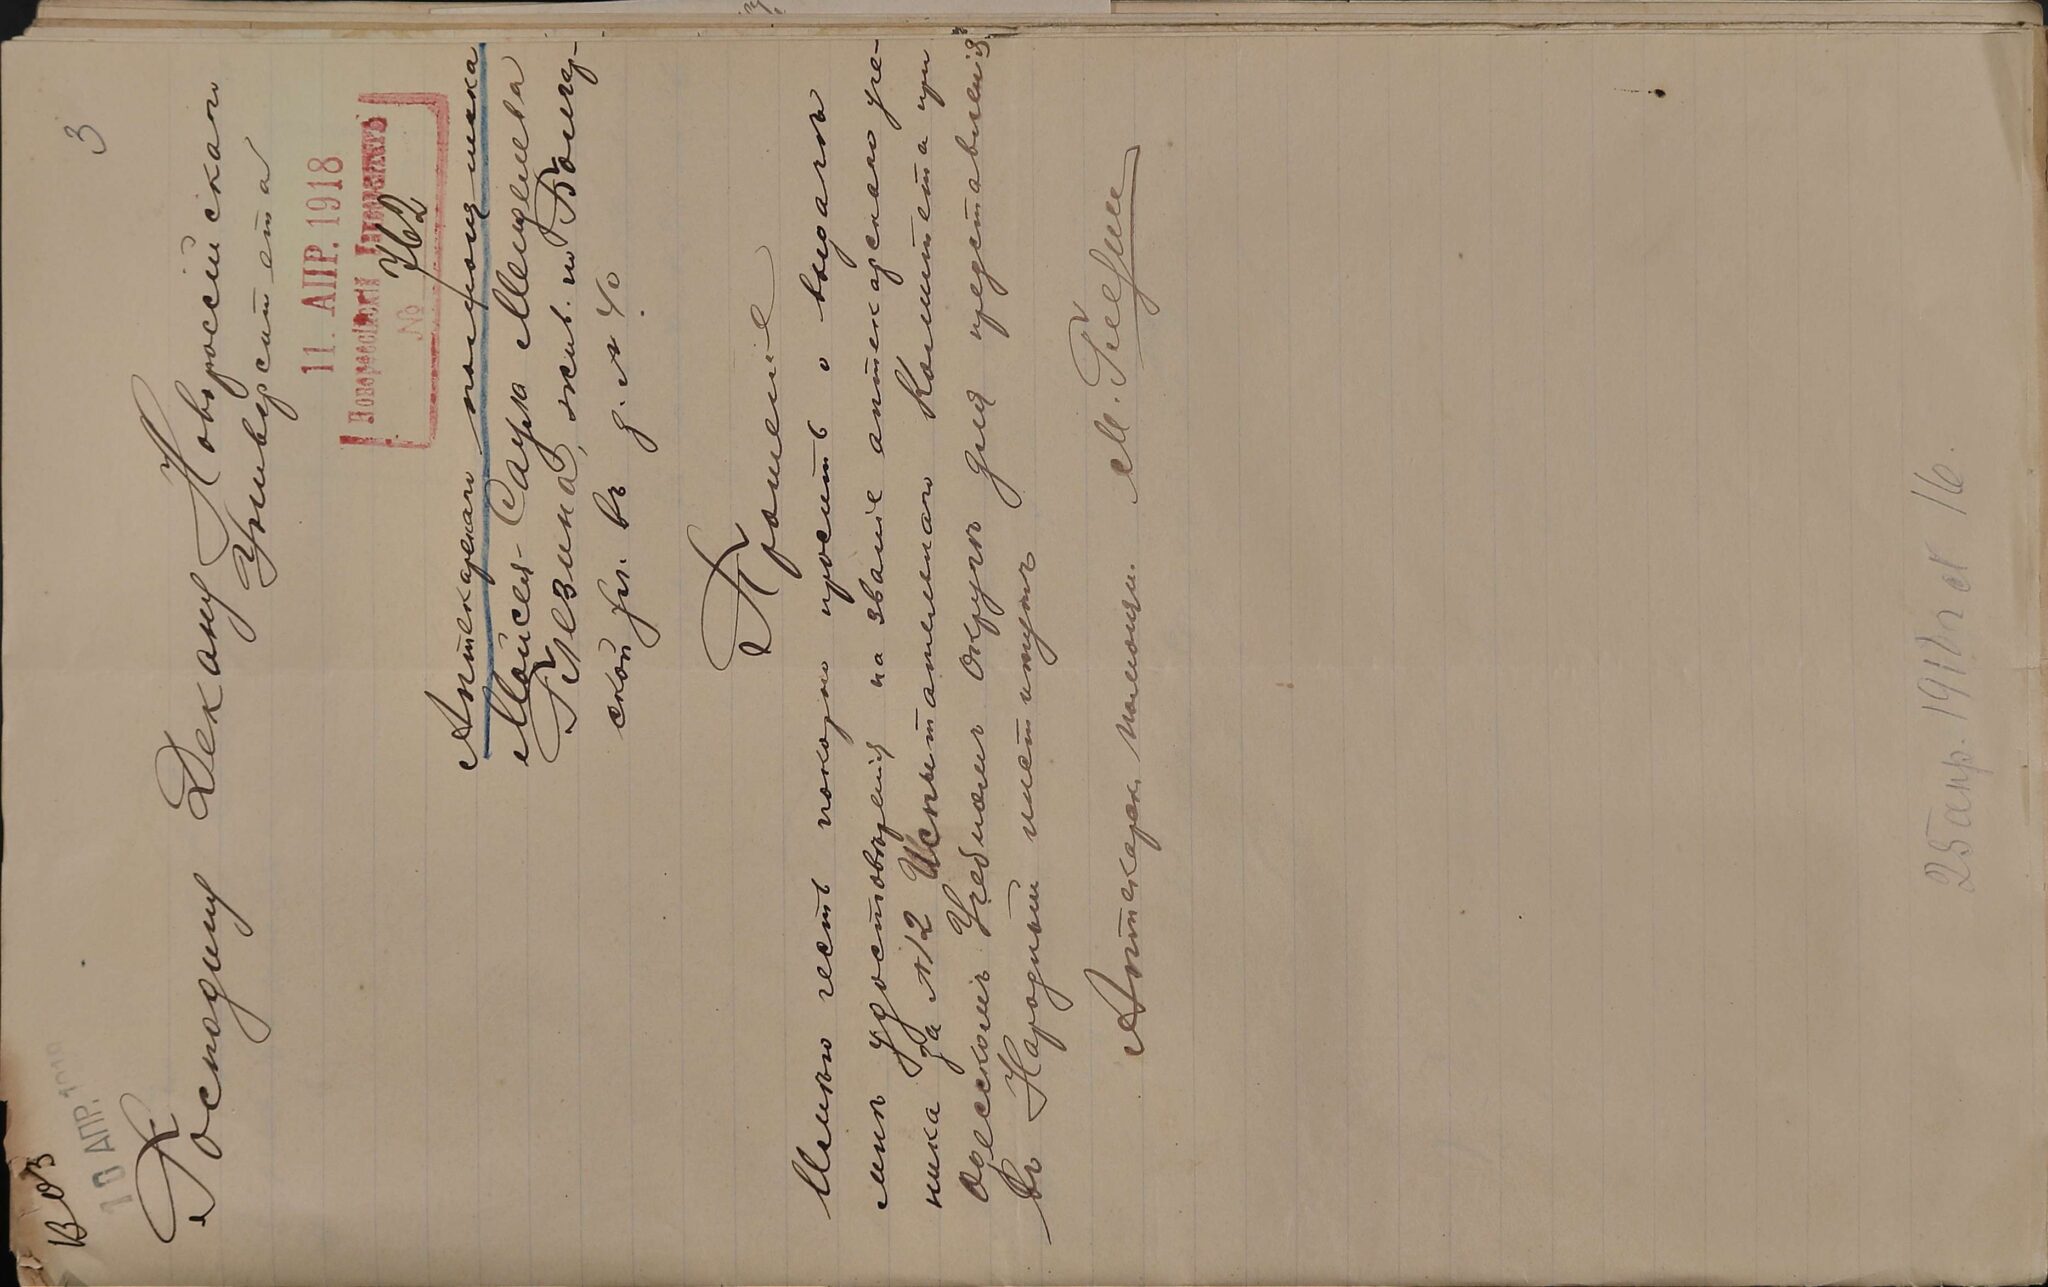 3
10 АПР.
Господину Декану Новороссійскаго
Университета
11. АПР. 1918
Новороссійскій Университетъ
№ 762
Аптекарскаго помощника
Мойсея-Саула Менделева
жив. по Болгар-
ской ул. въ д. №
Прошеніе
Имѣю честь покорно просить о выдачѣ
мнѣ удостовѣренія на званіе аптекарскаго уче-
ника за №12 Испытательнаго Комитета при
Одесскомъ Учебномъ Округѣ для представленія
въ Народный институтъ
Аптекарск. помощн. М.
25 апр. 191 № 16.